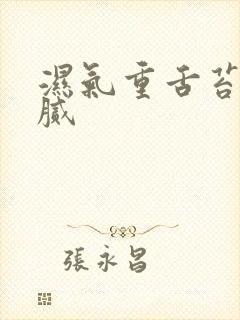 濕氣重舌苔
膩
張永昌